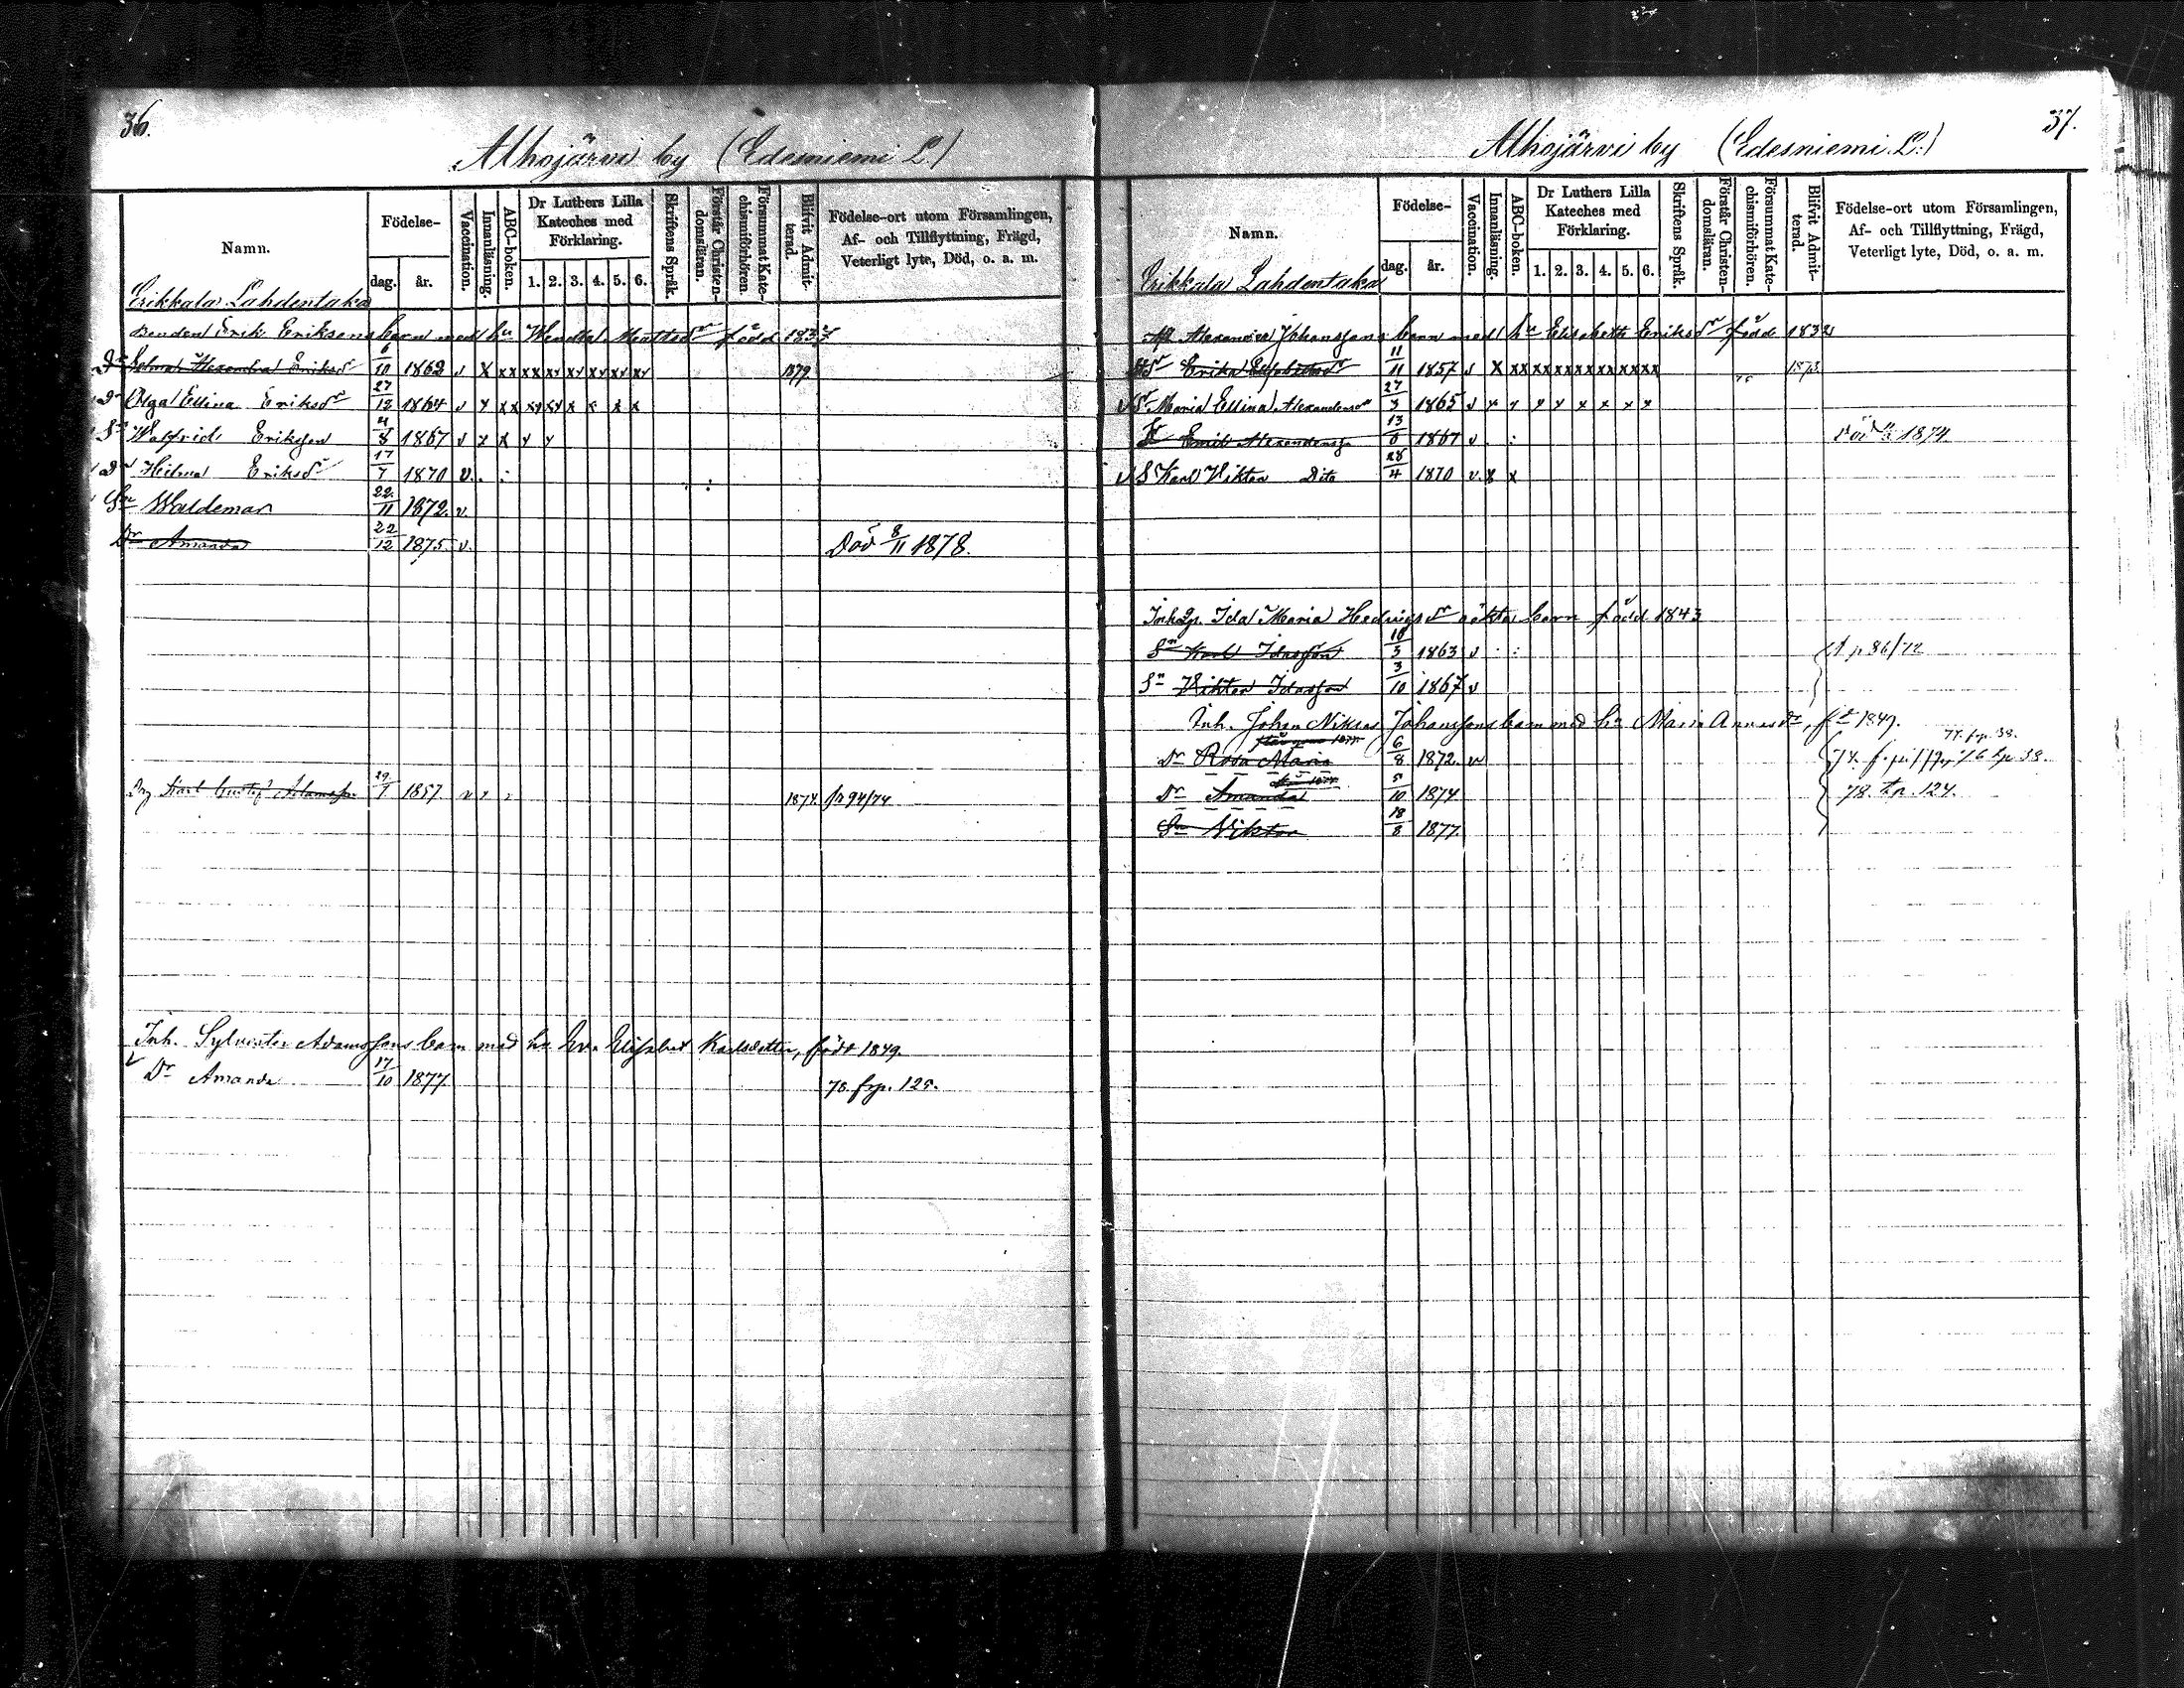 36.
Alhojärvi by (Edesniemi L.)
Namn. Födelse- dag. år. Vaccination. Innanläsning. ABC-boken. Dr Luthers Lilla Kateches med Förklaring. 1. 2. 3. 4. 5. 6. Skriftens Språk. Förstår Christendomsläran. Försummat Katechismiförhören. Blifvit Admitterad. Födelse-ort utom Församlingen, Af- och Tillflyttning, Frägd, Veterligt lyte, Död, o. a. m.
Erikkala Lahdentaka
Bonden Erik Eriksons barn med hu Wendla Mattsdr född 1837
Dr Selma Alexandra Eriksdr 6/10 1862 v x xx xx xx xx xx xx xx 1879
Dr Olga Ellina Eriksdr 27/12 1864 v x xx xx xx x x x x
Sn Walfrid Eriksson 4/8 1867 v x x x x
Dr Hilma Eriksdr 17/7 1870 v.
Sn Waldemar 22/11 1872. v.
Dr Amanda 22/12 1875. v. Död 8/11 1878.
Karl Gustaf Adamss. 29/1 1857. v x 1874. p 94/74
Inh. Sylvester Adamssons barn med hu Eva Elisabet Karlsdotter, född 1849.
Dr Amanda 17/10 1877. 78. frp. 125.
37.
Alhojärvi by (Edesniemi L.)
Namn. Födelse- dag. år. Vaccination. Innanläsning. ABC-boken. Dr Luthers Lilla Kateches med Förklaring. 1. 2. 3. 4. 5. 6. Skriftens Språk. Förstår Christendomsläran. Försummat Katechismiförhören. Blifvit Admitterad. Födelse-ort utom Församlingen, Af- och Tillflyttning, Frägd, Veterligt lyte, Död, o. a. m.
Erikkala Lahdentaka
Alexander Johanssons barn med hu Elisabeth Eriksdr född 1832
Erika 11/11 1857 v x xx xx xx xx xx xx xx
Dr Maria Ellina Alexandersdr 27/3 1865 v x x x x x x x x
Emil Alexanderss. 13/6 1867 v. Död 1874.
S Karl Viktor Dito 28/4 1870 v. x x
Inh. Ida Maria Hedvigsdr oäkta barn född 1843
Sn Karl Idasson 10/3 1863 v p 86/72
Sn Viktor Idasson 3/10 1867 v
Inh. Johan Niklas Johanssons barn med hu Maria Annasdr, född 1849.
Dr Rosa Maria 6/8 1872. v 77. frp. 38.
Dr Amanda 5/10 1874 78. tp. 124.
Sn Viktor 18/8 1877.